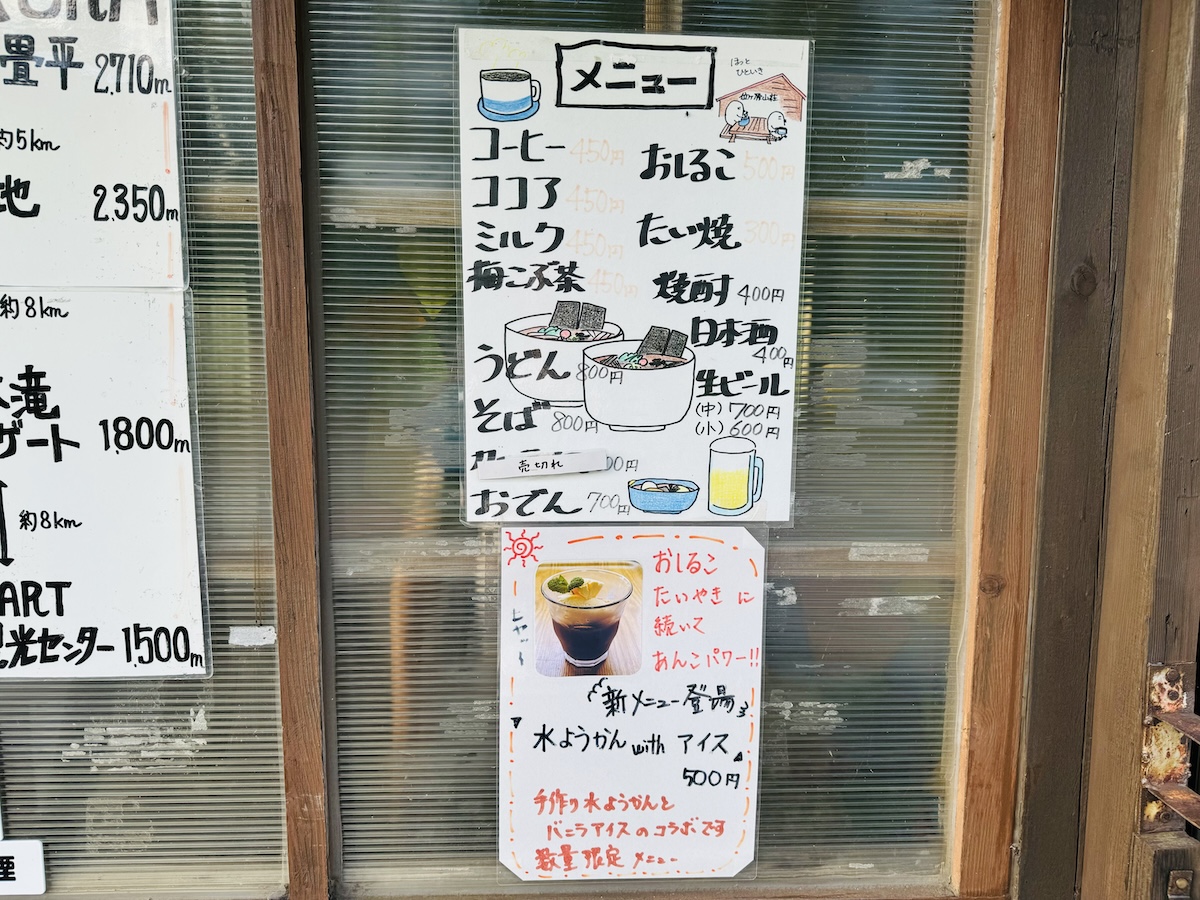 畳平 2710m
約5km
地 2.350m
約8km
滝
ザート 1.800m
約8km
ART
光センター 1.500m
メニュー
ほっと
ひといき
コーヒー 450円
ココア 450円
ミルク 450円
梅こぶ茶 450円
うどん 800円
そば 800円
売切れ 00円
おでん 700円
おしるこ 500円
たい焼 300円
焼酎 400円
日本酒
400円
生ビール
(中) 700円
(小) 600円
おしるこ
たいやきに
続いて
あんこパワー!!
新メニュー登場
水ようかん with アイス
500円
手作り水ようかんと
バニラアイスのコラボです
数量限定メニュー